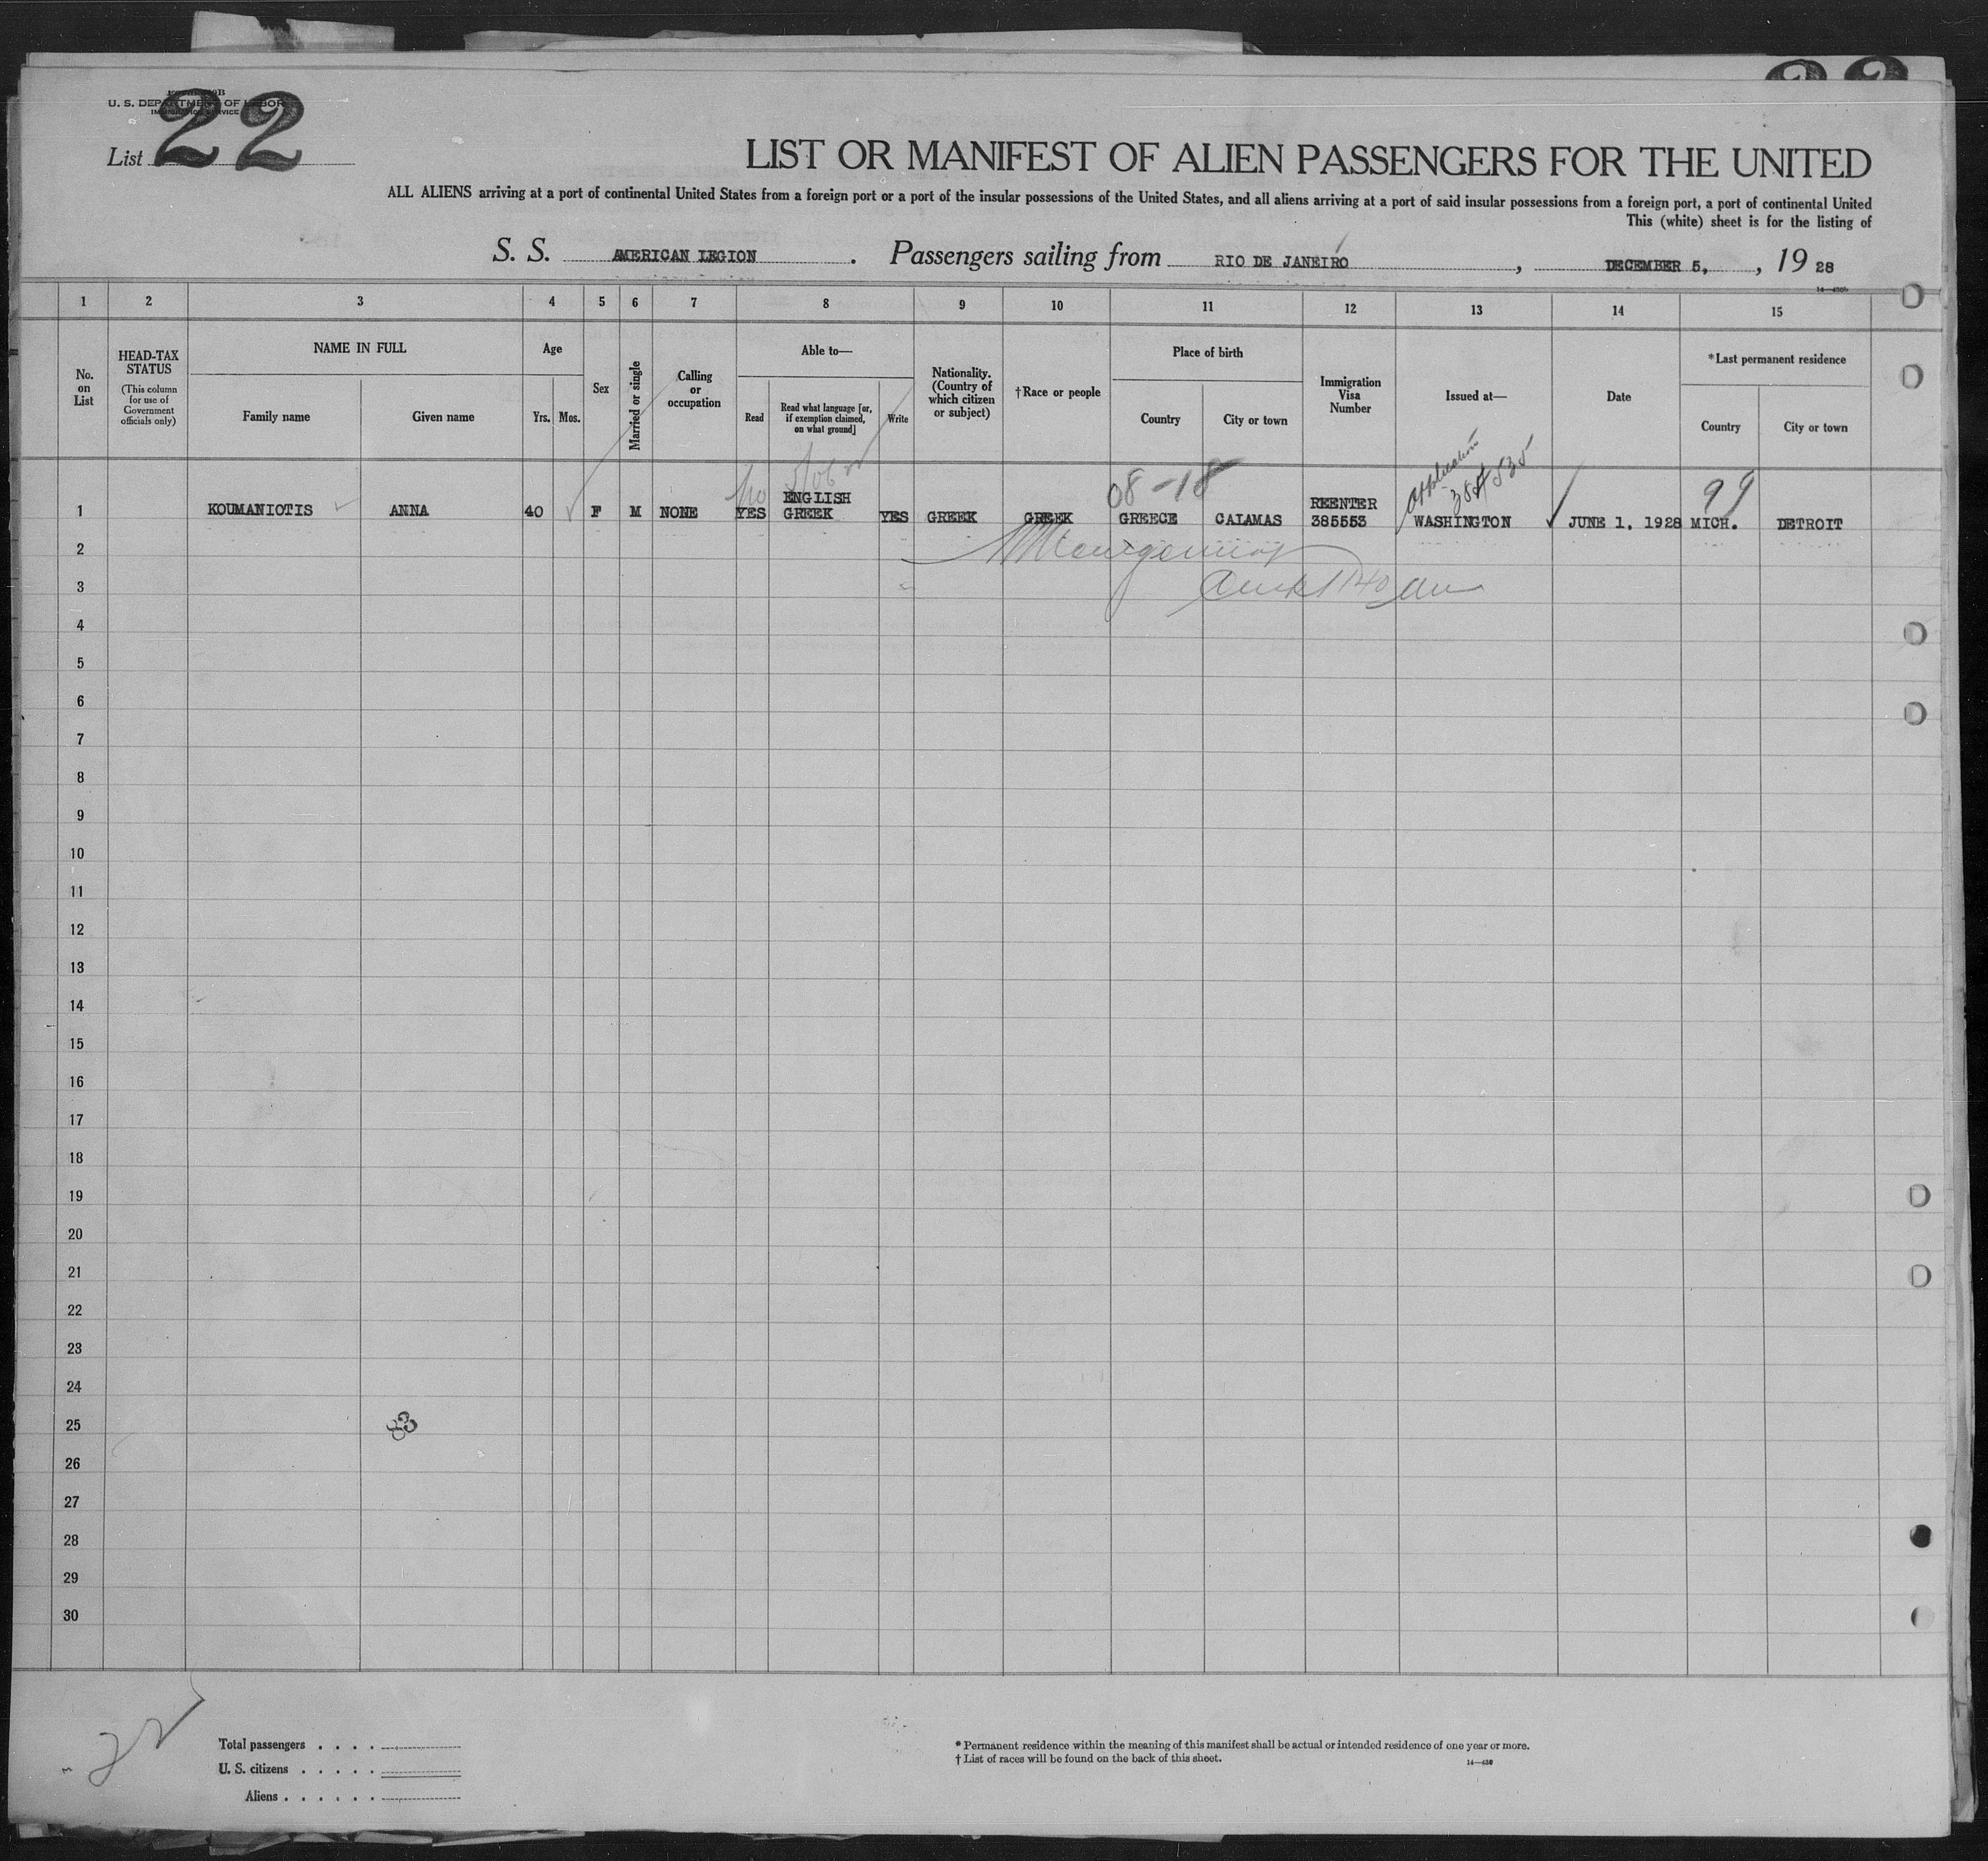 22 22
U. S. DEPARTMENT OF LABOR
IMMIGRATION SERVICE
List 22
LIST OR MANIFEST OF ALIEN PASSENGERS FOR THE UNITED
ALL ALIENS arriving at a port of continental United States from a foreign port or a port of the insular possessions of the United States, and all aliens arriving at a port of said insular possessions from a foreign port, a port of continental United
This (white) sheet is for the listing of
S. S. AMERICAN LEGION . Passengers sailing from RIO DE JANEIRO , DECEMBER 5, , 19 28
1 2 3 4 5 6 7 8 9 10 11 12 13 14 15
No. on List
HEAD-TAX STATUS (This column for use of Government officials only)
NAME IN FULL
Family name Given name
Age
Yrs. Mos.
Sex
Married or single
Calling or occupation
Able to—
Read
Read what language [or, if exemption claimed, on what ground]
Write
Nationality. (Country of which citizen or subject)
†Race or people
Place of birth
Country City or town
Immigration Visa Number
Issued at—
Date
*Last permanent residence
Country City or town
08-18 99
no
Application
1 KOUMANIOTIS ANNA 40 F M NONE YES ENGLISH GREEK YES GREEK GREEK GREECE CALAMAS REENTER 385553 WASHINGTON JUNE 1, 1928 MICH. DETROIT
2
3
4
5
6
7
8
9
10
11
12
13
14
15
16
17
18
19
20
21
22
23
24
25
83
26
27
28
29
30
22
Total passengers . . . .
U. S. citizens . . . . .
Aliens . . . . . .
* Permanent residence within the meaning of this manifest shall be actual or intended residence of one year or more.
† List of races will be found on the back of this sheet.
14—430